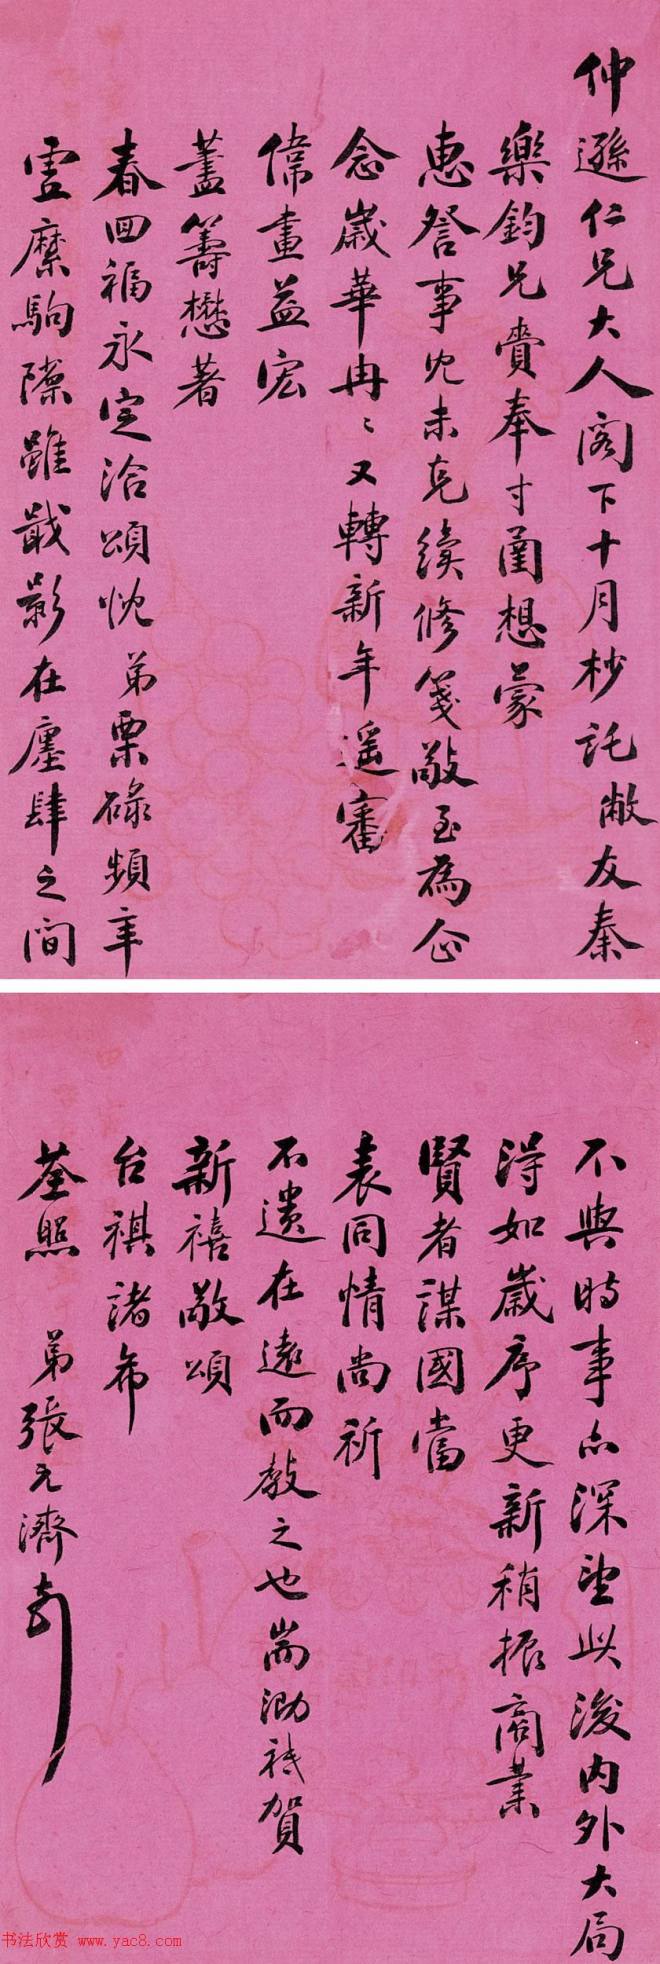 仲遜仁兄大人閣下十月杪託敝友秦
樂鈞兄賫奉寸圅想蒙
惠詧事冗未克續修箋敬至為企
念歲華冉〻又轉新年遥審
偉畫益宏
藎籌懋著
春回福永定洽頌忱弟栗碌頻年
虛縻駒隙雖戢影在廛肆之間
不與時事亦深望此後内外大局
得如歲序更新稍振商業
賢者謀國當
表同情尚祈
不遺在遠而教之也耑泐祗賀
新禧敬頌
台祺諸希
荃照 弟張元濟
书法欣赏 www.yac8.com